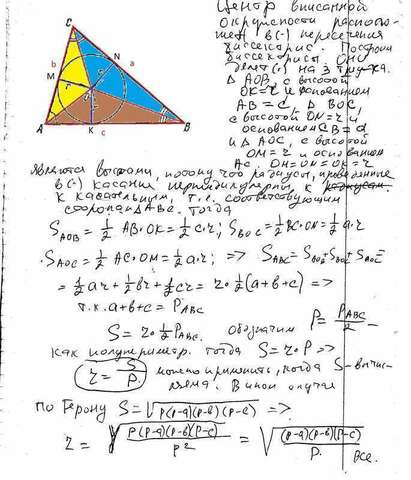 C
b
a
N
M
A
K
c
B
Центр вписанной
окружности располо-
жен в (·) пересечения
биссектрис. Построим
биссектрисы. Они
делят (·) на 3
Δ AOB, с высотой
OK=r и основанием
AB=c, Δ BOC,
с высотой ON=r и
основанием CB=a
и Δ AOC, с высотой
OM=r и основание
AC. OM=ON=OK=r
являются высотами, потому что радиусы, проведенные
в (·) касания перпендикулярны к
к касательным, т.е. соответствующим
сторонам ΔABC. Тогда
S_AOB = 1/2 AB·OK = 1/2 c·r; S_BOC = 1/2 BC·ON = 1/2 a·r
S_AOC = 1/2 AC·OM = 1/2 b·r; => S_ABC = S_AOB + S_BOC + S_AOC =
= 1/2 ar + 1/2 br + 1/2 cr = r·1/2 (a+b+c) =>
т.к. a+b+c = P_ABC
S = r·1/2 P_ABC. Обозначим P = P_ABC/2 –
как полупериметр. Тогда S = r·P =>
r = S/P. можно применять, когда S – вычис-
лена. В ином случае
по Герону S = √(P(P-a)(P-b)(P-c)) =>
r = √(P(P-a)(P-b)(P-c)/P²) = √((P-a)(P-b)(P-c)/P). Все.